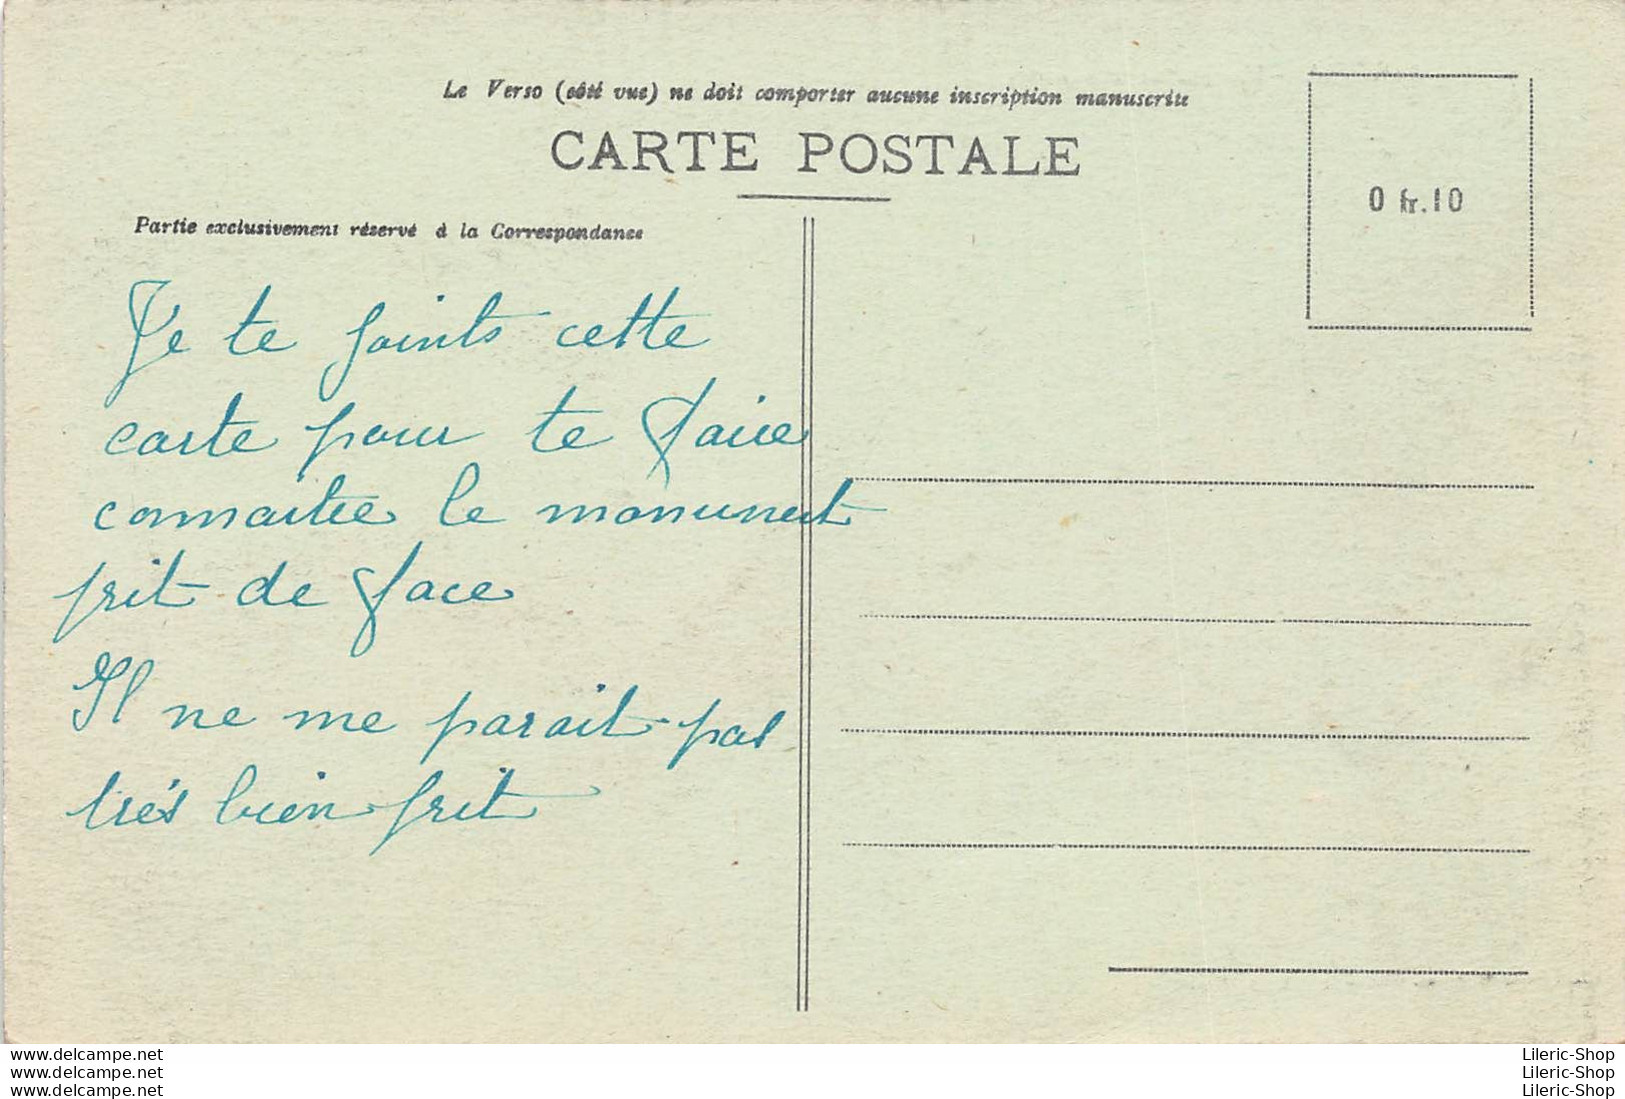 Le Verso (côté vue) ne doit comporter aucune inscription manuscrite
CARTE POSTALE
0 fr.10
Partie exclusivement réservé à la Correspondance
Je te joints cette
carte pour te faire
connaitre le monument
prit de face
Il ne me parait pas
trés bien prit
www.delcampe.net
www.delcampe.net
www.delcampe.net
Lileric-Shop
Lileric-Shop
Lileric-Shop